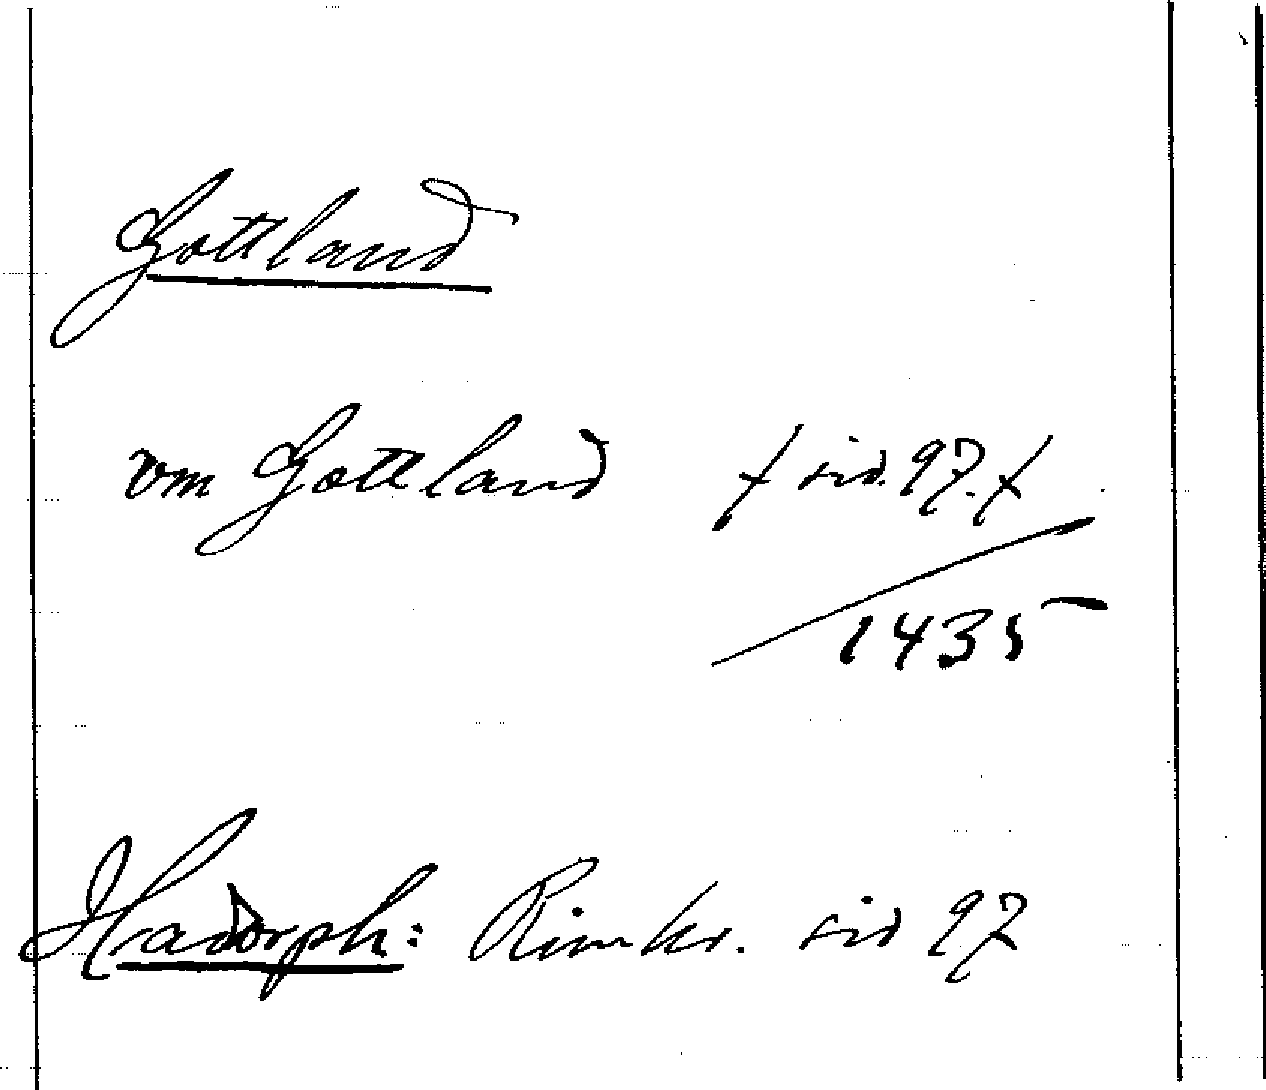 Gottland
vm Gottland / sid. 97. /
1435
Hadorph: Rimkr. sid 97